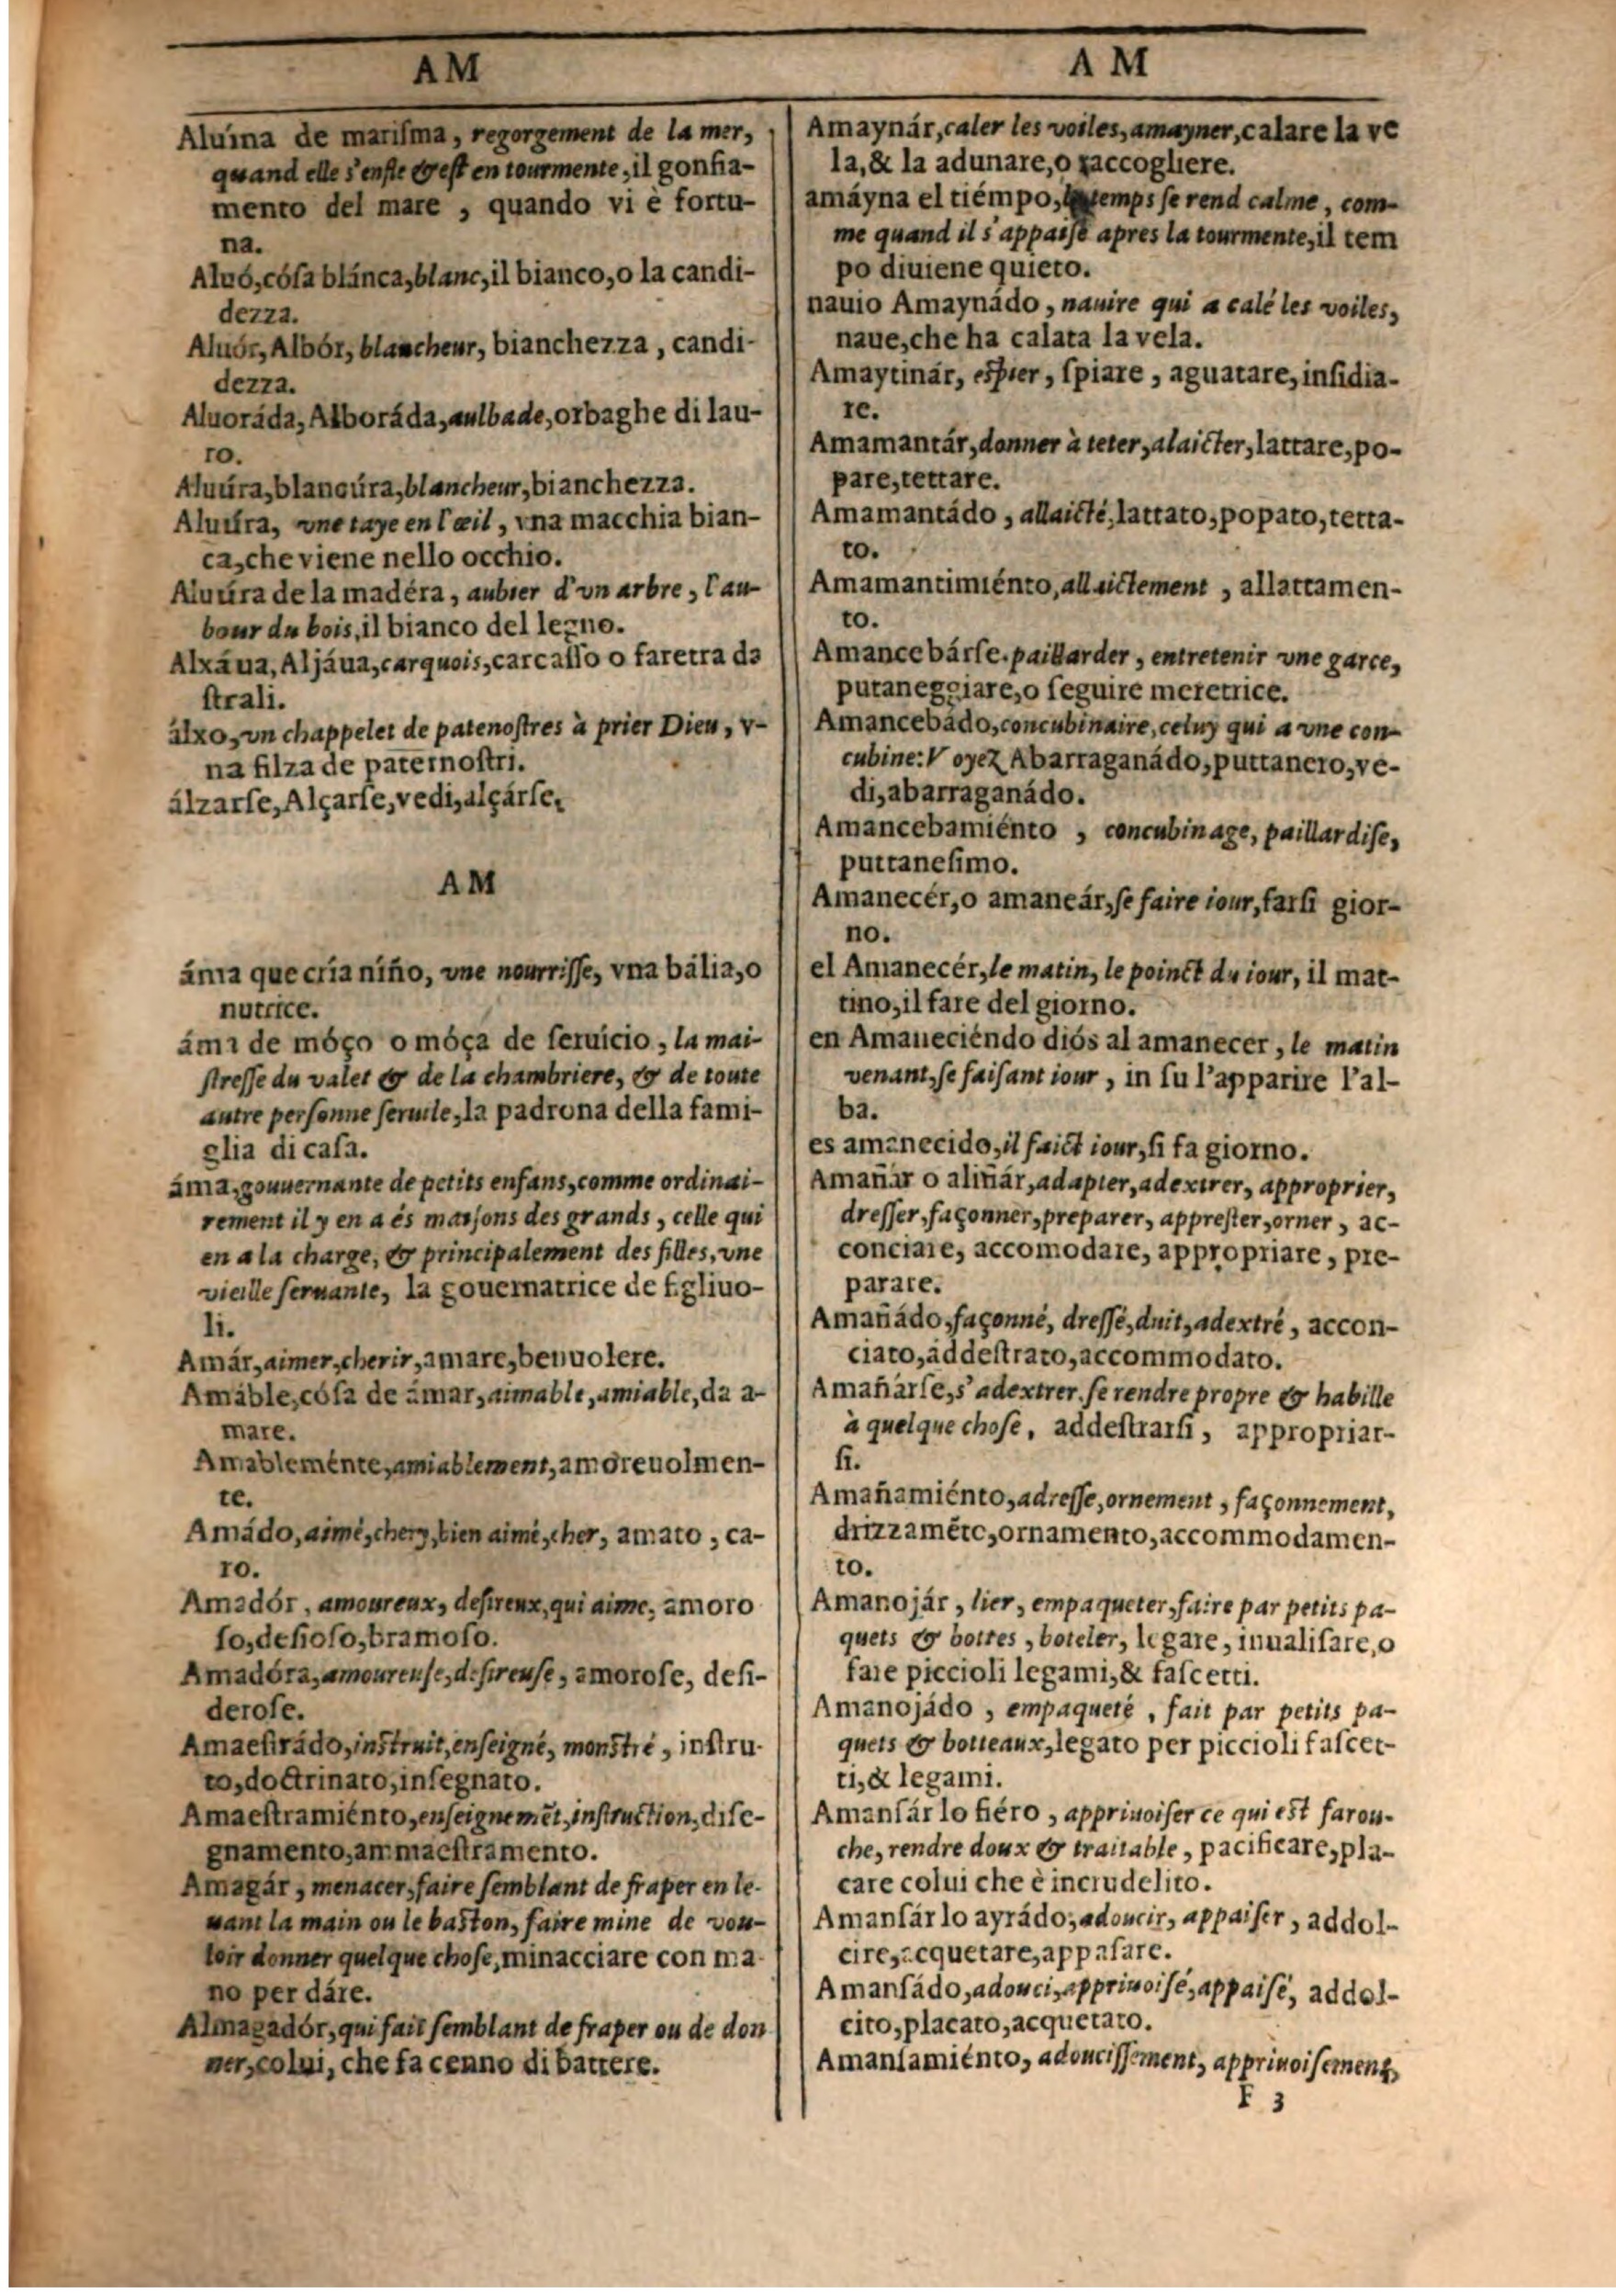 AM
Aluína de marisma, regorgement de la mer,
quand elle s'enfle & est en tourmente, il gonfia-
mento del mare, quando vi è fortu-
na.
Aluó, cósa blánca, blanc, il bianco, o la candi-
dezza.
Aluór, Albór, blancheur, bianchezza, candi-
dezza.
Aluoráda, Alboráda, aulbade, orbaghe di lau-
ro.
Aluúra, blancúra, blancheur, bianchezza.
Aluúra, vne taye en l'œil, vna macchia bian-
ca, che viene nello occhio.
Aluúra de la madéra, aubier d'vn arbre, l'au-
bour du bois, il bianco del legno.
Alxáua, Aljáua, carquois, carcasso o faretra da
strali.
álxo, vn chappelet de patenostres à prier Dieu, v-
na filza de paternostri.
álzarse, Alçarse, vedi, alçárse.
AM
áma que cría níño, vne nourrisse, vna bália, o
nutrice.
áma de móço o móça de seruício, la mai-
stresse du valet & de la chambriere, & de toute
autre personne seruile, la padrona della fami-
glia di casa.
áma, gouuernante de petits enfans, comme ordinai-
rement il y en a és maisons des grands, celle qui
en a la charge, & principalement des filles, vne
vieille seruante, la gouernatrice de figliuo-
li.
Amár, aimer, cherir, amare, benuolere.
Amáble, cósa de ámar, aimable, amiable, da a-
mare.
Amableménte, amiablement, amoreuolmen-
te.
Amádo, aimé, chery, bien aimé, cher, amato, ca-
ro.
Amadór, amoureux, desireux, qui aime, amoro
so, desioso, bramoso.
Amadóra, amoureuse, desireuse, amorose, desi-
derose.
Amaestrádo, instruit, enseigné, monstré, instru-
to, doctrinato, insegnato.
Amaestramiénto, enseignemẽt, instruction, dise-
gnamento, ammaestramento.
Amagár, menacer, faire semblant de fraper en le-
uant la main ou le baston, faire mine de vou-
loir donner quelque chose, minacciare con ma
no per dáre.
Almagadór, qui fait semblant de fraper ou de don
ner, colui, che fa cenno di battere.
A M
Amaynár, caler les voiles, amayner, calare la ve
la, & la adunare, o raccogliere.
amáyna el tiémpo, le temps se rend calme, com-
me quand il s'appaise apres la tourmente, il tem
po diuiene quieto.
nauio Amaynádo, nauire qui a calé les voiles,
naue, che ha calata la vela.
Amaytinár, espier, spiare, aguatare, insidia-
re.
Amamantár, donner à teter, alaicter, lattare, po-
pare, tettare.
Amamantádo, allaicté, lattato, popato, tetta-
to.
Amamantimiénto, allaictement, allattamen-
to.
Amancebárse. paillarder, entretenir vne garce,
putaneggiare, o seguire meretrice.
Amancebádo, concubinaire, celuy qui a vne con-
cubine: Voyez Abarraganádo, puttanero, ve-
di, abarraganádo.
Amancebamiénto, concubinage, paillardise,
puttanesimo.
Amanecér, o amaneár, se faire iour, farsi gior-
no.
el Amanecér, le matin, le poinct du iour, il mat-
tino, il fare del giorno.
en Amaneciéndo diós al amanecer, le matin
venant, se faisant iour, in su l'apparire l'al-
ba.
es amanecido, il faict iour, si fa giorno.
Amañár o aliñár, adapter, adextrer, approprier,
dresser, façonner, preparer, apprester, orner, ac-
conciare, accomodare, appropriare, pre-
parare.
Amañádo, façonné, dressé, duit, adextré, accon-
ciato, addestrato, accommodato.
Amañárse, s'adextrer. se rendre propre & habille
à quelque chose, addestrarsi, appropriar-
si.
Amañamiénto, adresse, ornement, façonnement,
drizzamẽto, ornamento, accommodamen-
to.
Amanojár, lier, empaqueter, faire par petits pa-
quets & bottes, boteler, legare, inualisare, o
fare piccioli legami, & fascetti.
Amanojádo, empaqueté, fait par petits pa-
quets & botteaux, legato per piccioli fascet-
ti, & legami.
Amansár lo fiéro, appriuoiser ce qui est farou-
che, rendre doux & traitable, pacificare, pla-
care colui che è incrudelito.
Amansár lo ayrádo, adoucir, appaiser, addol-
cire, acquetare, appasare.
Amansádo, adouci, appriuoisé, appaisé, addol-
cito, placato, acquetato.
Amansamiénto, adoucissement, appriuoisement,
F 3